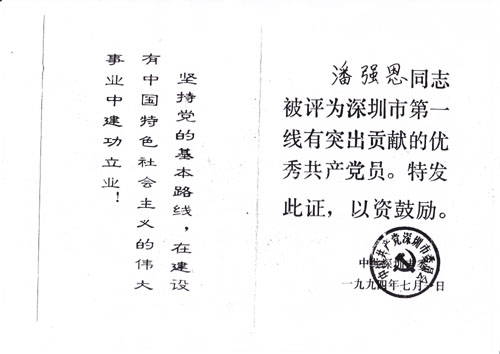 坚持党的基本路线，在建设
有中国特色社会主义的伟大
事业中建功立业！
潘强恩同志
被评为深圳市第一
线有突出贡献的优
秀共产党员。特发
此证，以资鼓励。
中国共产党深圳市委员会
中共深圳市委
一九九四年七月一日